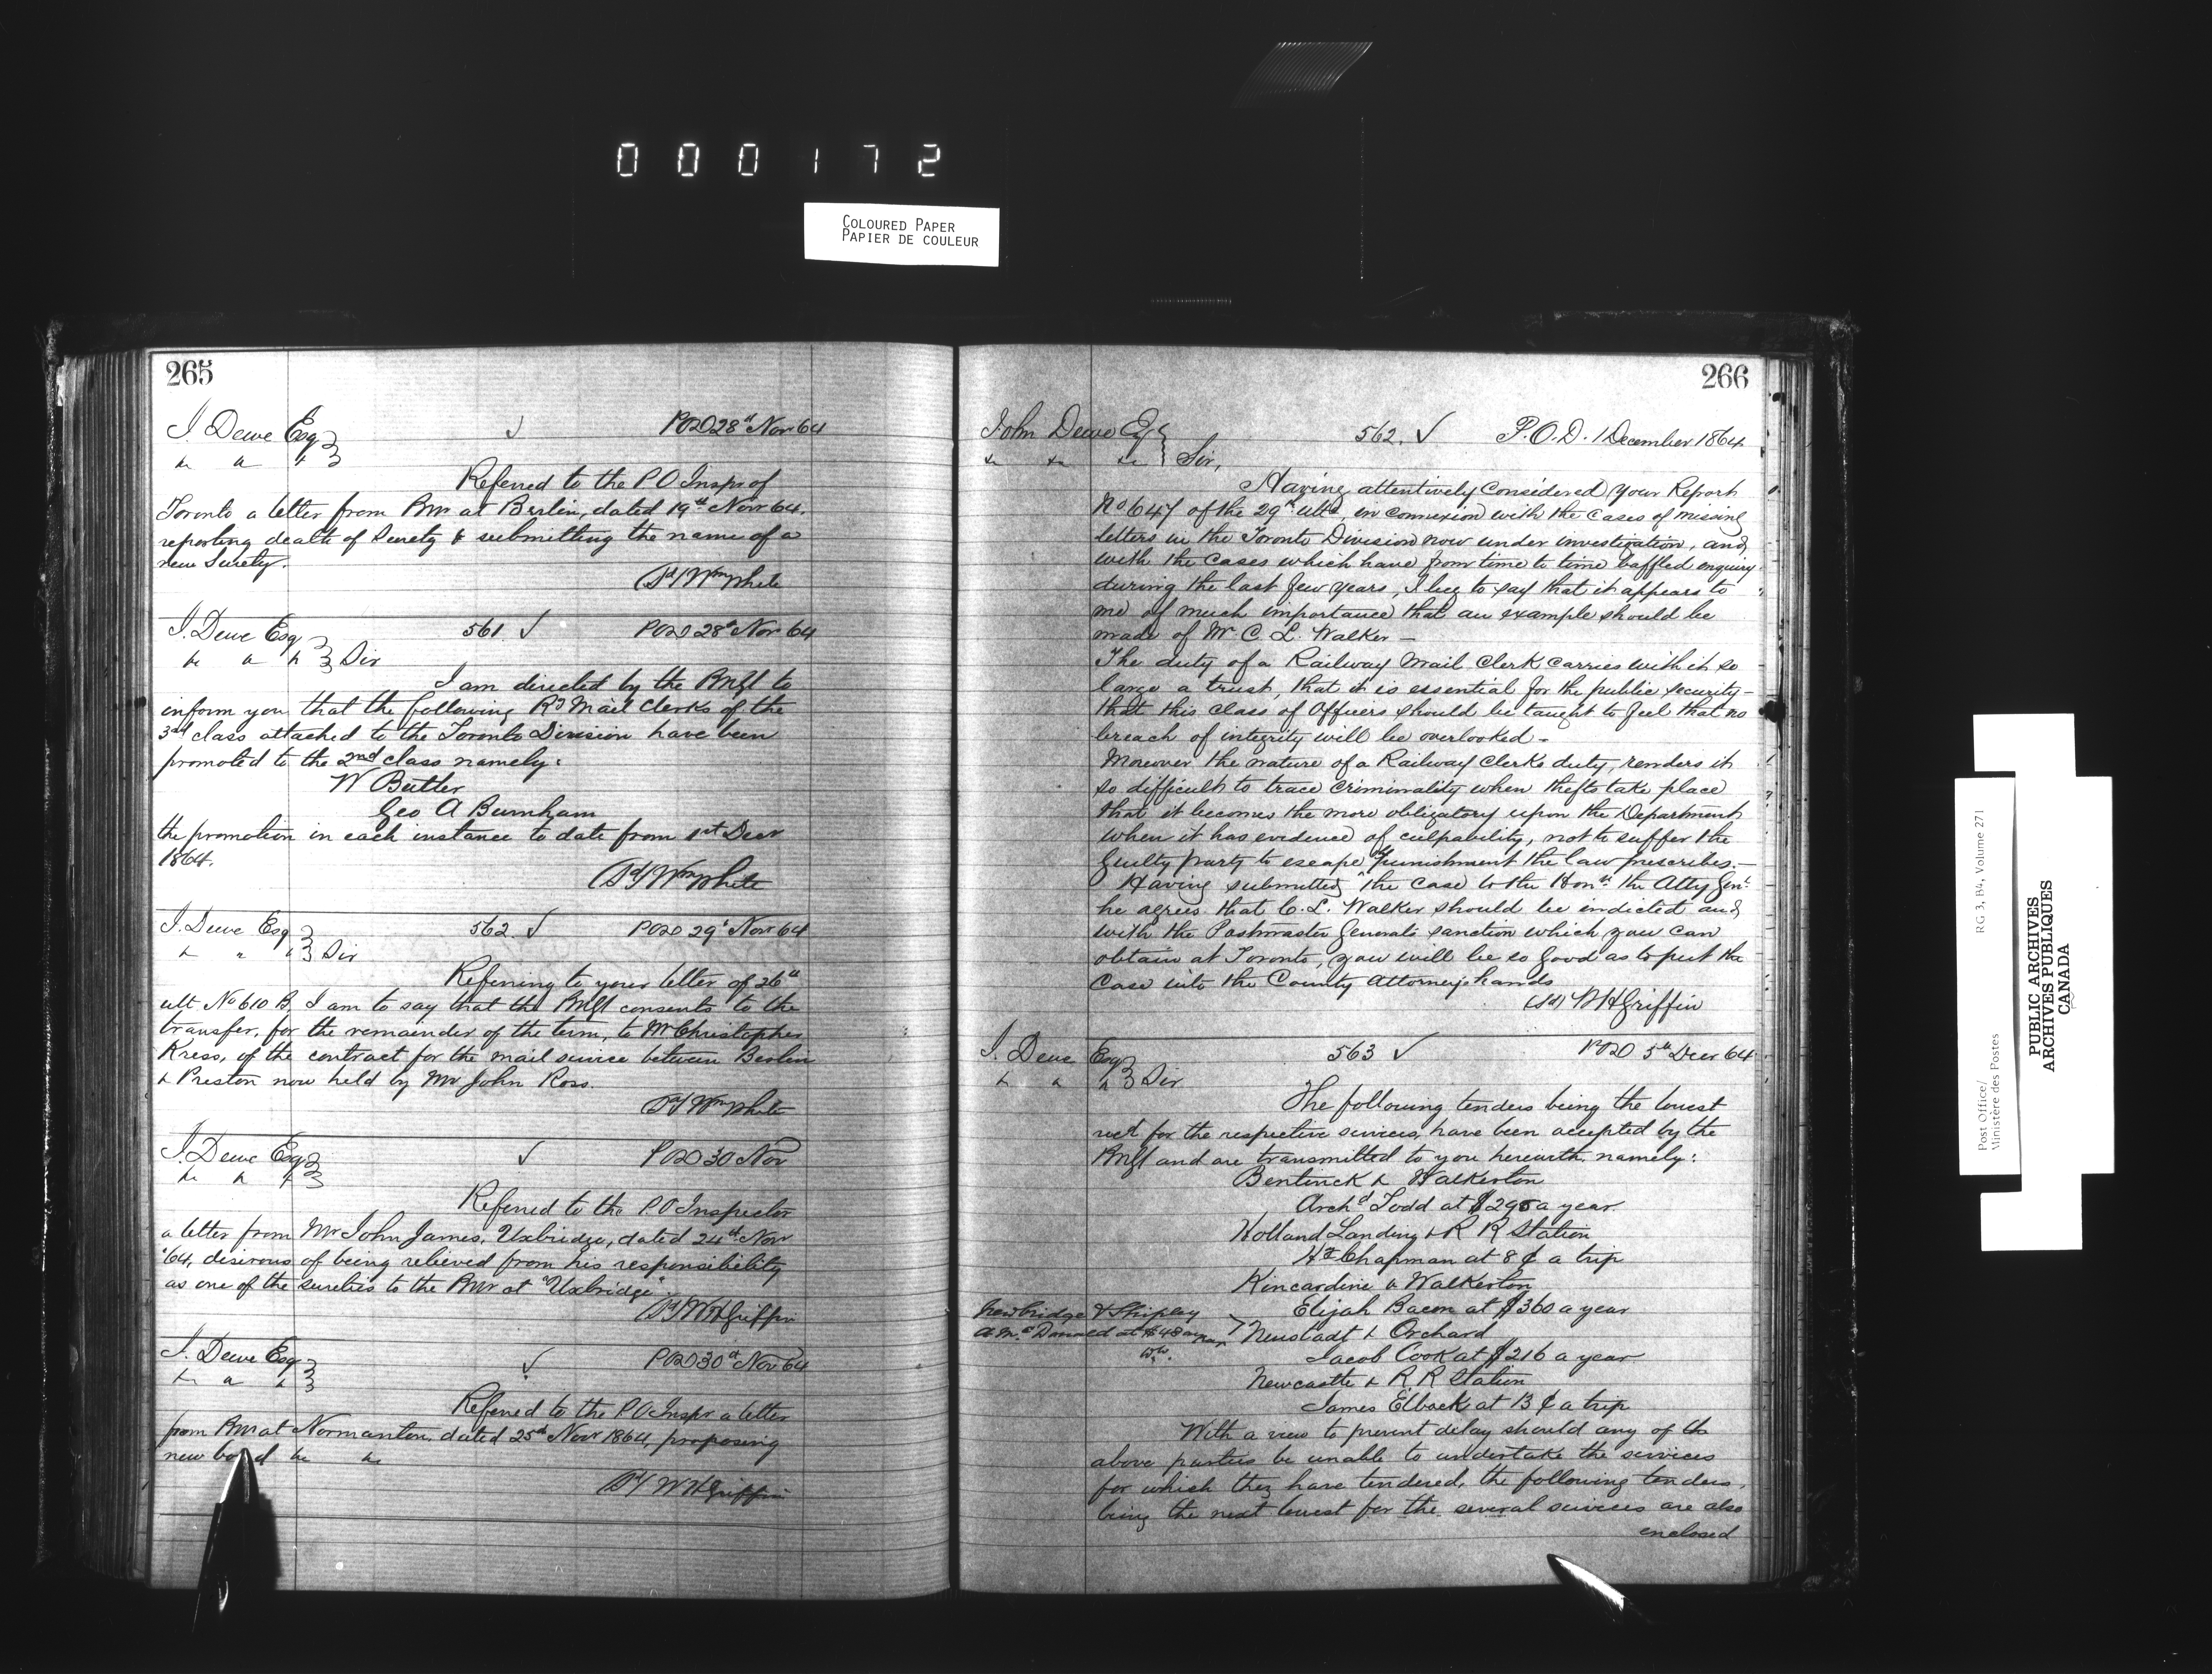 000172
COLOURED PAPER
PAPIER DE COULEUR
265
J. Dewe Esq
✓
POD 28th Nov 64
Referred to the P.O Inspr of
Toronto a letter from PMr at Berlin, dated 19th Novr 64.
reporting death of Surety & submitting the name of a
new Surety.
Sd/ Wm White
J. Dewe Esq
561. ✓
POD 28th Nov 64
&c &c &c Sir
I am directed by the PMGl to
inform you that the following Ry Mail Clerks of the
3rd class attached to the Toronto Division have been
promoted to the 2nd class namely:
W Butler
Geo A Burnham
the promotion in each instance to date from 1st Decr
1864.
Sd/ Wm White
J. Dewe Esq
562. ✓
POD 29th Novr 64
&c &c &c Sir
Referring to your letter of 26th
ult No 610 B, I am to say that the PMGl consents to the
transfer, for the remainder of the term, to Mr Christopher
Kress, of the contract for the mail service between Berlin
& Preston now held by Mr John Ross.
Sd/ Wm White
J. Dewe Esq
✓
POD 30 Nov
&c &c &c
Referred to the P.O Inspector
a letter from Mr John James, Uxbridge, dated 24th Novr
'64, desirous of being relieved from his responsibility
as one of the sureties to the PMr at "Uxbridge".
Sd/ WH Griffin
J. Dewe Esq
✓
POD 30th Nov 64
&c &c &c
Referred to the P.O Inspr a letter
from PMr at Normanton, dated 25th Novr 1864, proposing
new bond &c &c
Sd/ WH Griffin
266
John Dewe Esq
562. ✓
P.O.D. 1 December 1864
&c &c &c Sir,
Having attentively considered your Report
No 647 of the 29th ulto, in connexion with the cases of missing
letters in the Toronto Division now under investigation, and
with the cases which have from time to time baffled enquiry
during the last few years, I beg to say that it appears to
me of much importance that an example should be
made of Mr C. L. Walker —
The duty of a Railway Mail Clerk carries with it so
large a trust, that it is essential for the public security —
that this class of Officers should be taught to feel that no
breach of integrity will be overlooked —
Moreover the nature of a Railway Clerks duty, renders it
so difficult to trace criminality when thefts take place
that it becomes the more obligatory upon the Department
when it has evidence of culpability, not to suffer the
guilty party to escape the punishment the law prescribes. —
Having submitted the case to the Honble the Atty Genl
he agrees that C. L. Walker should be indicted and
with the Postmaster Generals sanction which you can
obtain at Toronto, you will be so good as to put the
case into the County Attorneys hands
(sd) WH Griffin
J. Dewe Esq
563 ✓
POD 5th Decr 64
&c &c &c Sir
The following tenders being the lowest
recd for the respective services, have been accepted by the
PMGl and are transmitted to you herewith, namely:
Bentinck & Walkerton
Archd Todd at $295 a year
Holland Landing & R R Station
Chapman at 8 ¢ a trip
Kincardine & Walkerton
Elijah Bacon at $360 a year
Newbridge & Shipley
A McDonald at $48 a year
Neustadt & Orchard
Jacob Cook at $216 a year
Newcastle & R. R Station
James Elbeck at 13 ¢ a trip
With a view to prevent delay should any of the
above parties be unable to undertake the services
for which they have tendered, the following tenders,
being the next lowest for the several services are also
enclosed
Post Office/
Ministère des Postes
RG 3, B4, Volume 271
PUBLIC ARCHIVES
ARCHIVES PUBLIQUES
CANADA